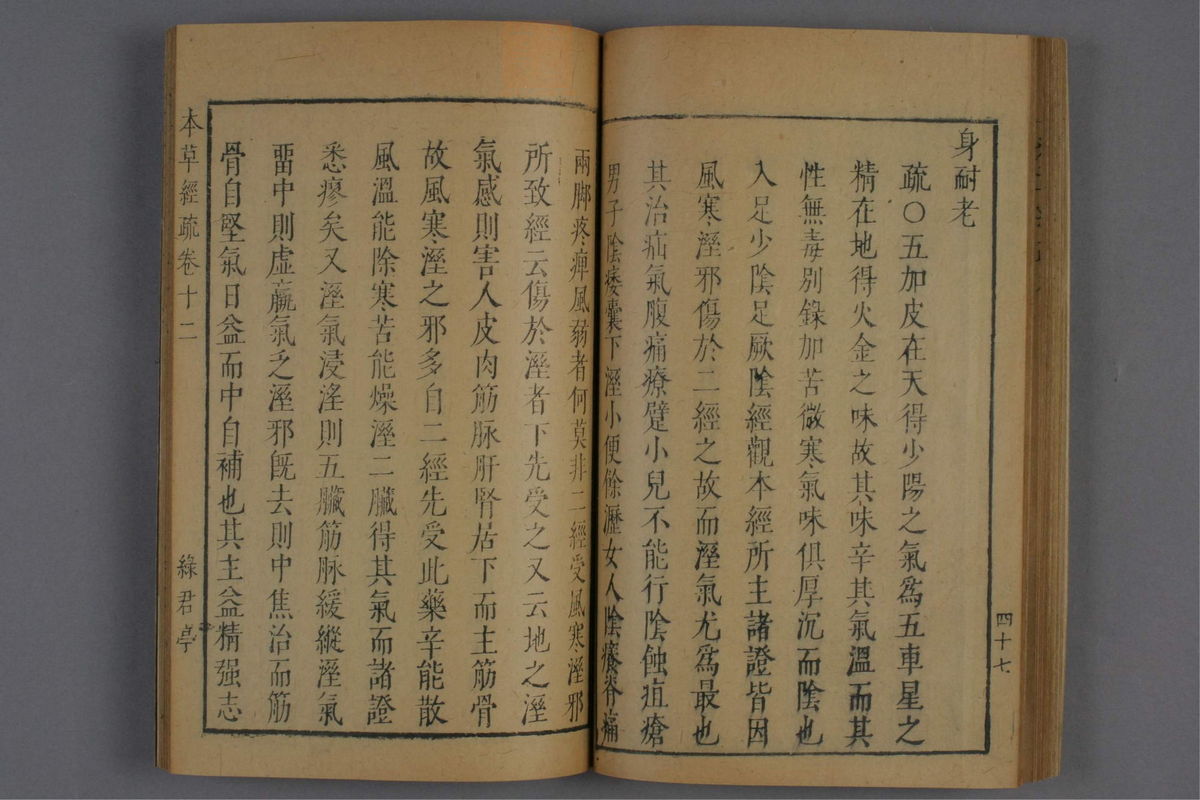 身耐老
疏○五加皮在天得少陽之氣爲五車星之
精在地得火金之味故其味辛其氣溫而其
性無毒別錄加苦微寒氣味俱厚沉而陰也
入足少陰足厥陰經觀本經所主諸證皆因
風寒溼邪傷於二經之故而溼氣尤爲最也
其治疝氣腹痛療躄小兒不能行陰蝕疽瘡
男子陰痿囊下溼小便餘瀝女人陰癢脊痛
四十七
兩脚疼痺風弱者何莫非二經受風寒溼邪
所致經云傷於溼者下先受之又云地之溼
氣感則害人皮肉筋脉肝腎居下而主筋骨
故風寒溼之邪多自二經先受此藥辛能散
風溫能除寒苦能燥溼二臟得其氣而諸證
悉瘳矣又溼氣浸淫則五臟筋脉緩縱溼氣
畱中則虛羸氣乏溼邪旣去則中焦治而筋
骨自堅氣日益而中自補也其主益精强志
本草經疏卷十二
綠君亭